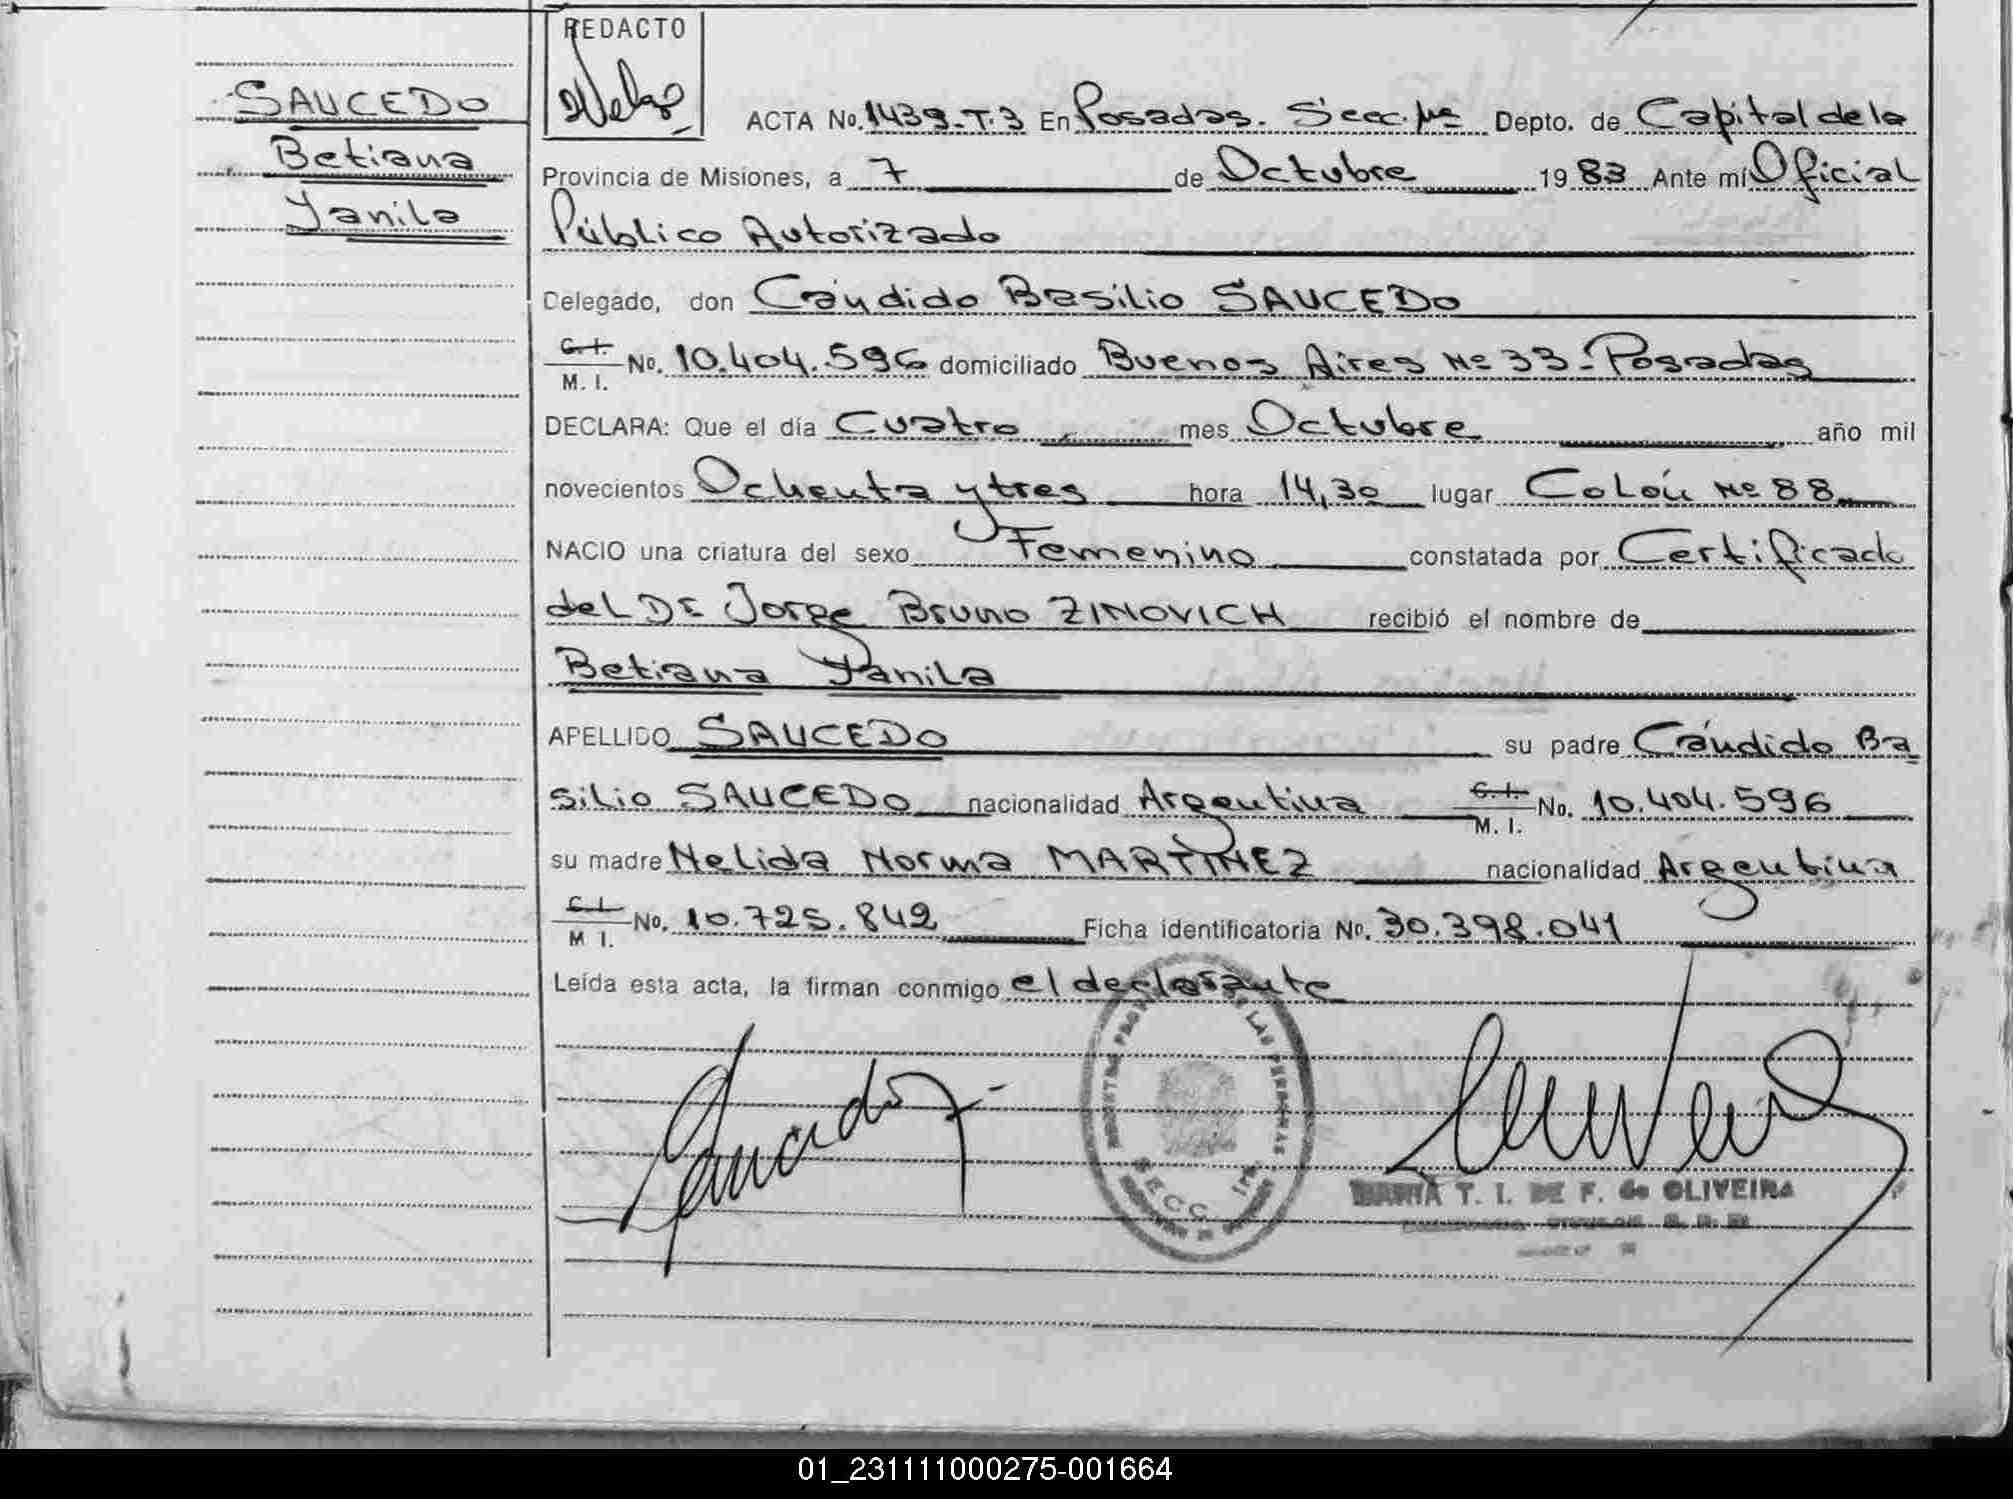 REDACTO
SAUCEDO
Betiana
Yanila
ACTA No. 1439-T.3 En Posadas. Secc. 1ª Depto. de Capital de la
Provincia de Misiones, a 7 de Octubre 1983 Ante mí Oficial
Público Autorizado
Delegado, don Cándido Basilio SAUCEDO
C. I.
M. I. No. 10.404.596 domiciliado Buenos Aires Nº 33-Posadas
DECLARA: Que el día Cuatro mes Octubre año mil
novecientos Ochenta y tres hora 14,30 lugar Colón Nº 88
NACIO una criatura del sexo Femenino constatada por Certificado
del Dr Jorge Bruno ZINOVICH recibió el nombre de
Betiana Yanila
APELLIDO SAUCEDO su padre Cándido Ba
silio SAUCEDO nacionalidad Argentina C. I. M. I. No. 10.404.596
su madre Nelida Norma MARTINEZ nacionalidad Argentina
C. I. M I. No. 10.725.842 Ficha identificatoria No. 30.398.041
Leída esta acta, la firman conmigo el declarante
REGISTRO PROV. DE LAS PERSONAS
SECC. 1ra.
MARIA T. I. DE F. de OLIVEIRA
01_231111000275-001664